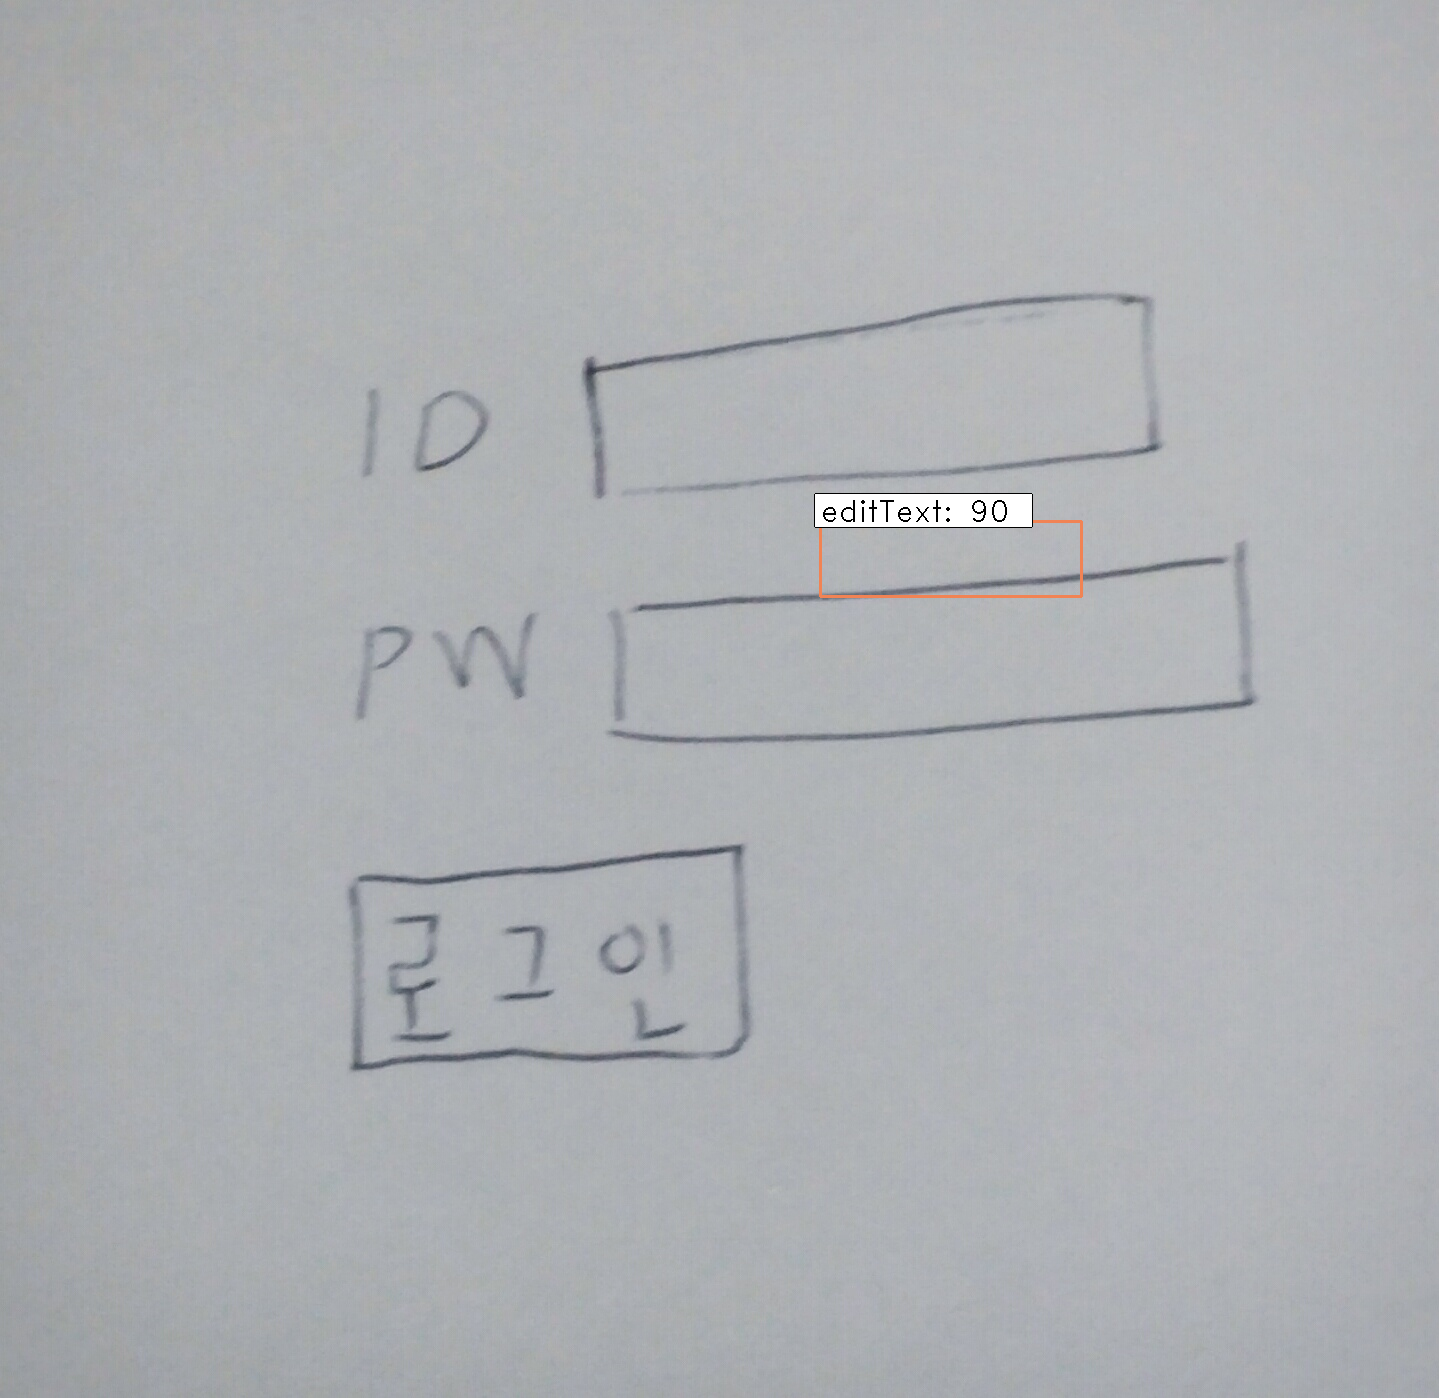 ID
editText: 90
PW
로그인